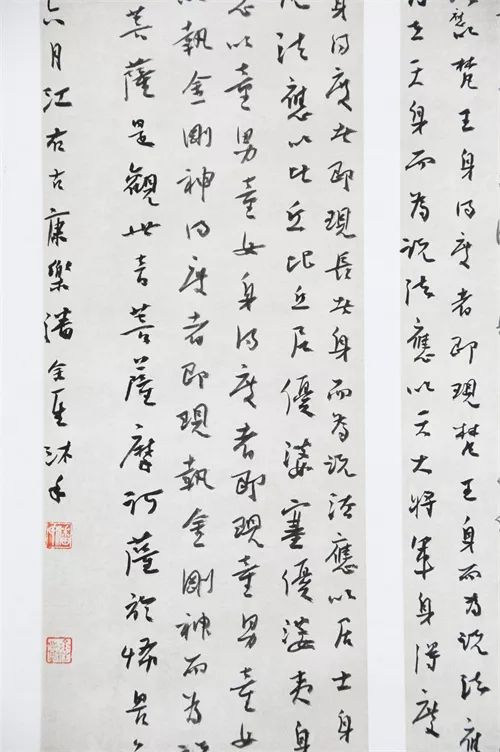 以梵王身得度者即現梵王身而為说法應
在天身而為说法應以天大將軍身得度
身得度者即現長者身而為说法應以居士身
法應以比丘比丘尼優婆塞優婆夷身
以童男童女身得度者即現童男童女
以執金剛神得度者即現執金剛神而為
菩薩是觀世音菩薩摩訶薩於怖畏
六月江右古康樂潘金沐手